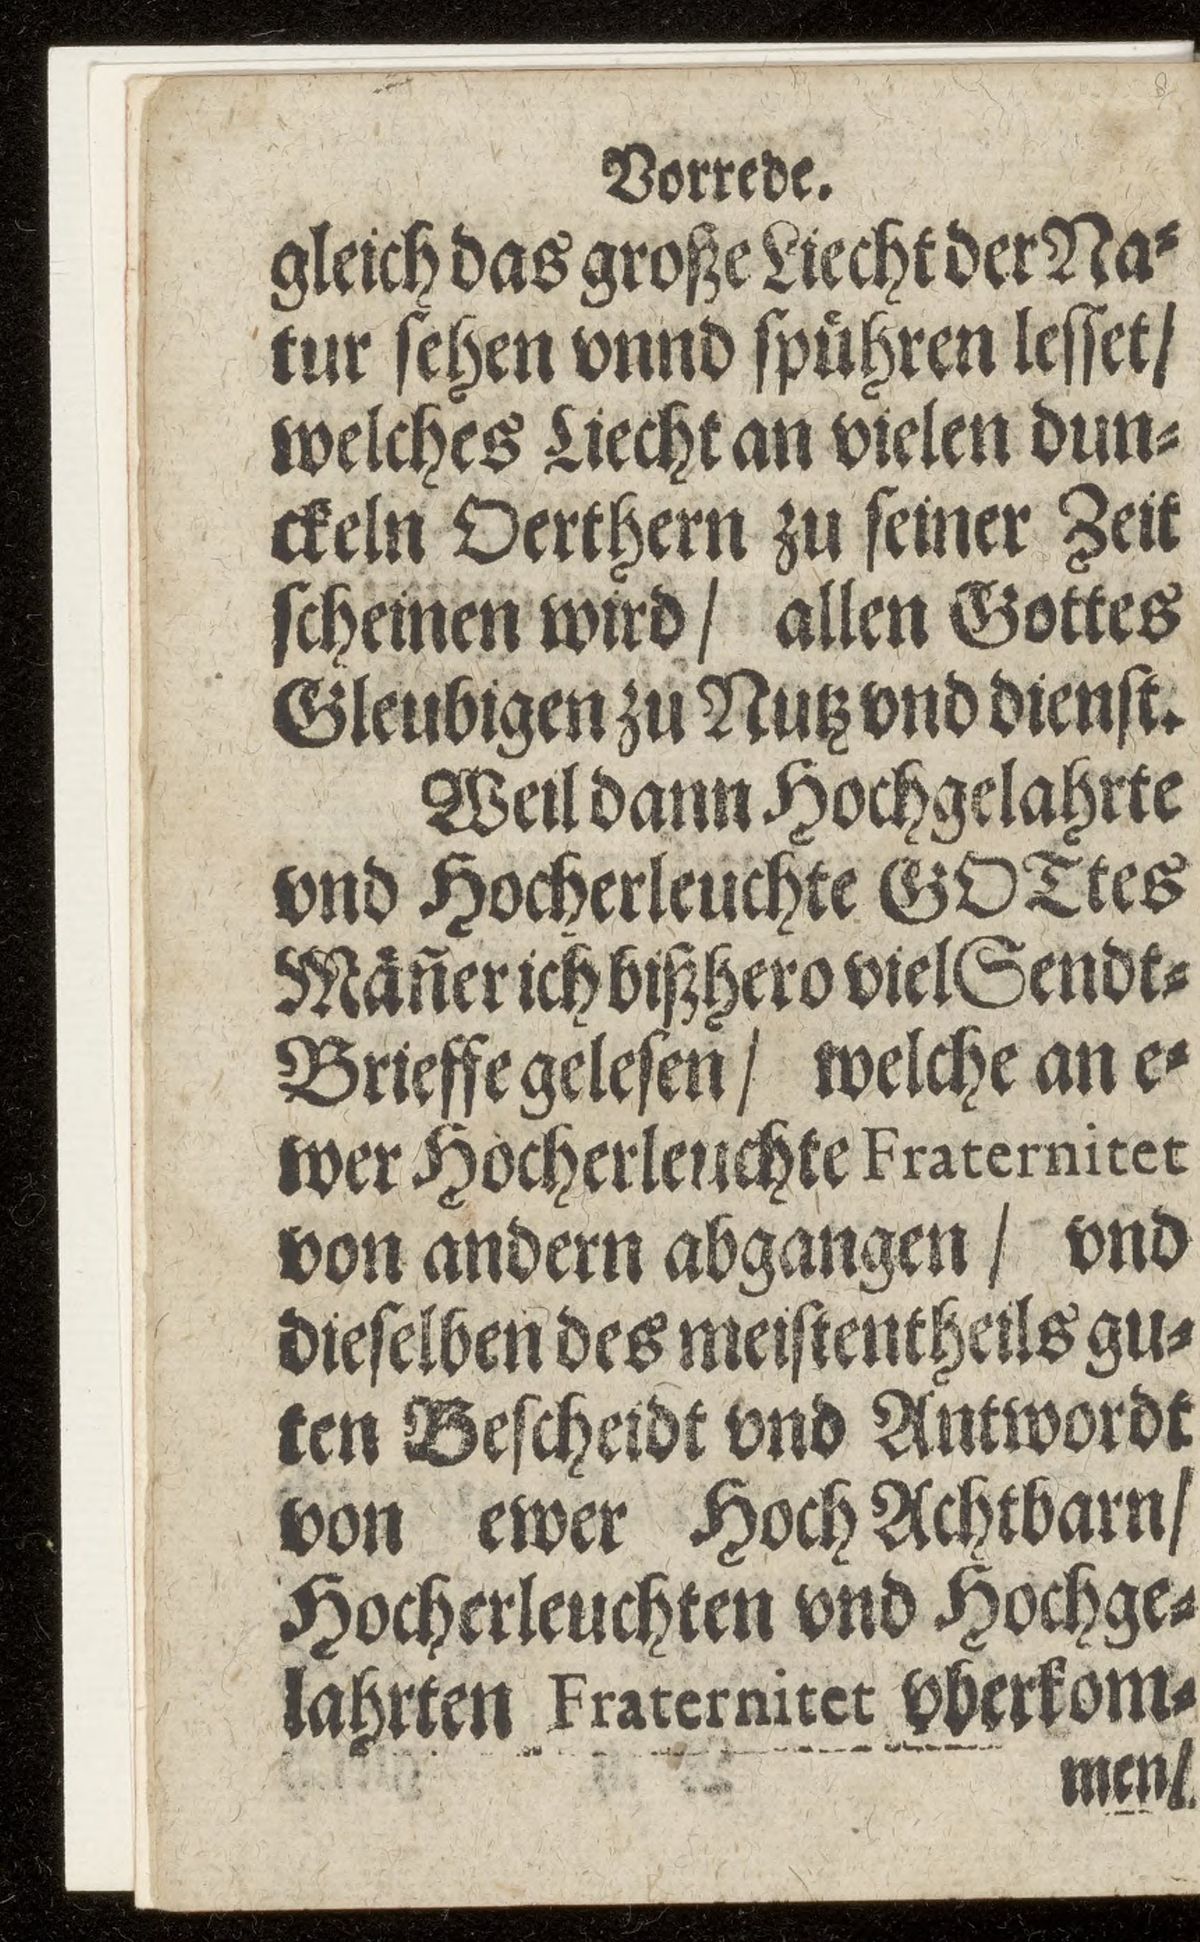 Vorrede.
gleich das große Liecht der Na⸗
tur sehen vnnd spühren lesset/
welches Liecht an vielen dun⸗
ckeln Oerthern zu seiner Zeit
scheinen wird/ allen Gottes
Gleubigen zu Nutz vnd dienst.
Weil dann Hochgelahrte
vnd Hocherleuchte GOTtes
Mäñer ich bißhero viel Sendt⸗
Brieffe gelesen/ welche an e⸗
wer Hocherleuchte Fraternitet
von andern abgangen/ vnd
dieselben des meistentheils gu⸗
ten Bescheidt vnd Antwordt
von ewer Hoch Achtbarn/
Hocherleuchten vnd Hochge⸗
lahrten Fraternitet vberkom⸗
men/